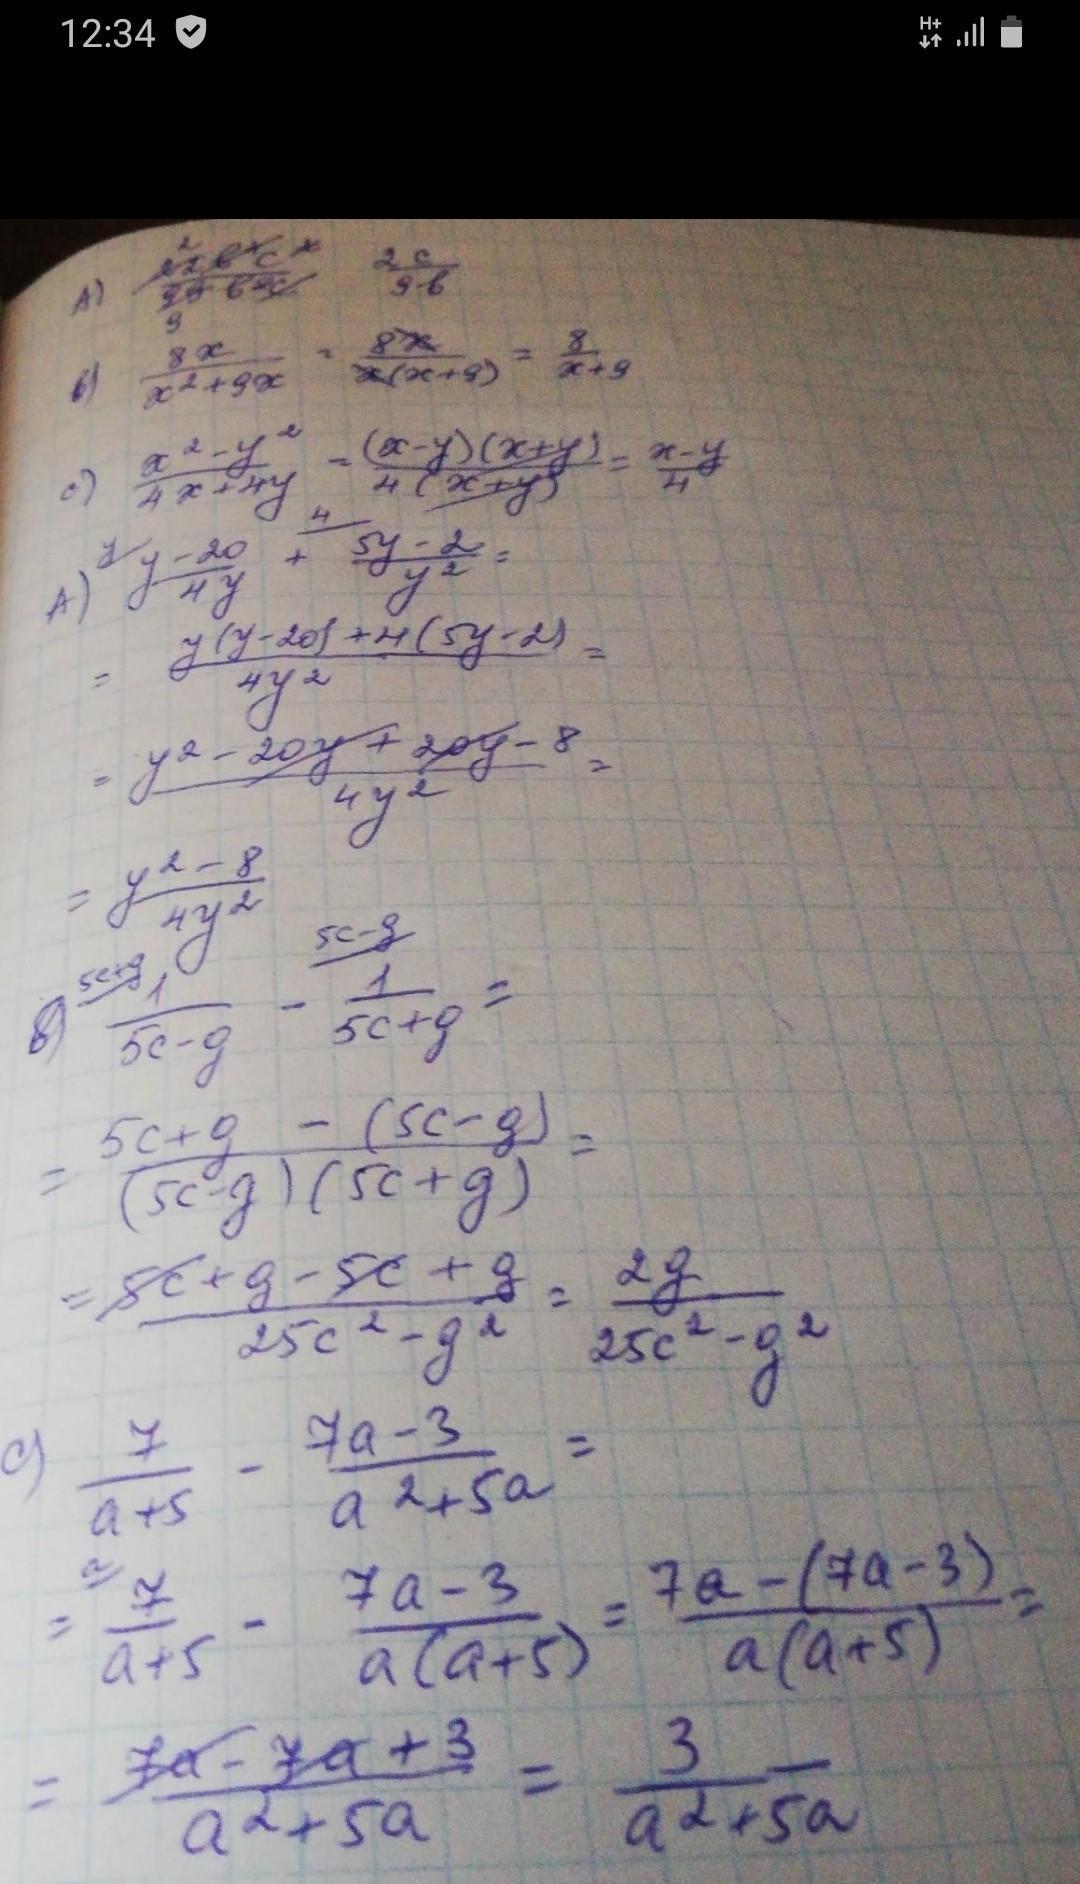 12:34 H+
A) 2c/9b
B) 8x/x²+9x = 8x/x(x+9) = 8/x+9
c) x²-y²/4x+4y = (x-y)(x+y)/4(x+y) = x-y/4
A) y y-20/4y + 4 5y-2/y² =
= y(y-20)+4(5y-2)/4y² =
= y²-20y+20y-8/4y² =
= y²-8/4y²
B) 5c+g 1/5c-g - 5c-g 1/5c+g =
= 5c+g - (5c-g)/(5c-g)(5c+g) =
= 5c+g-5c+g/25c²-g² = 2g/25c²-g²
c) 7/a+5 - 7a-3/a²+5a =
= a 7/a+5 - 7a-3/a(a+5) = 7a-(7a-3)/a(a+5) =
= 7a-7a+3/a²+5a = 3/a²+5a